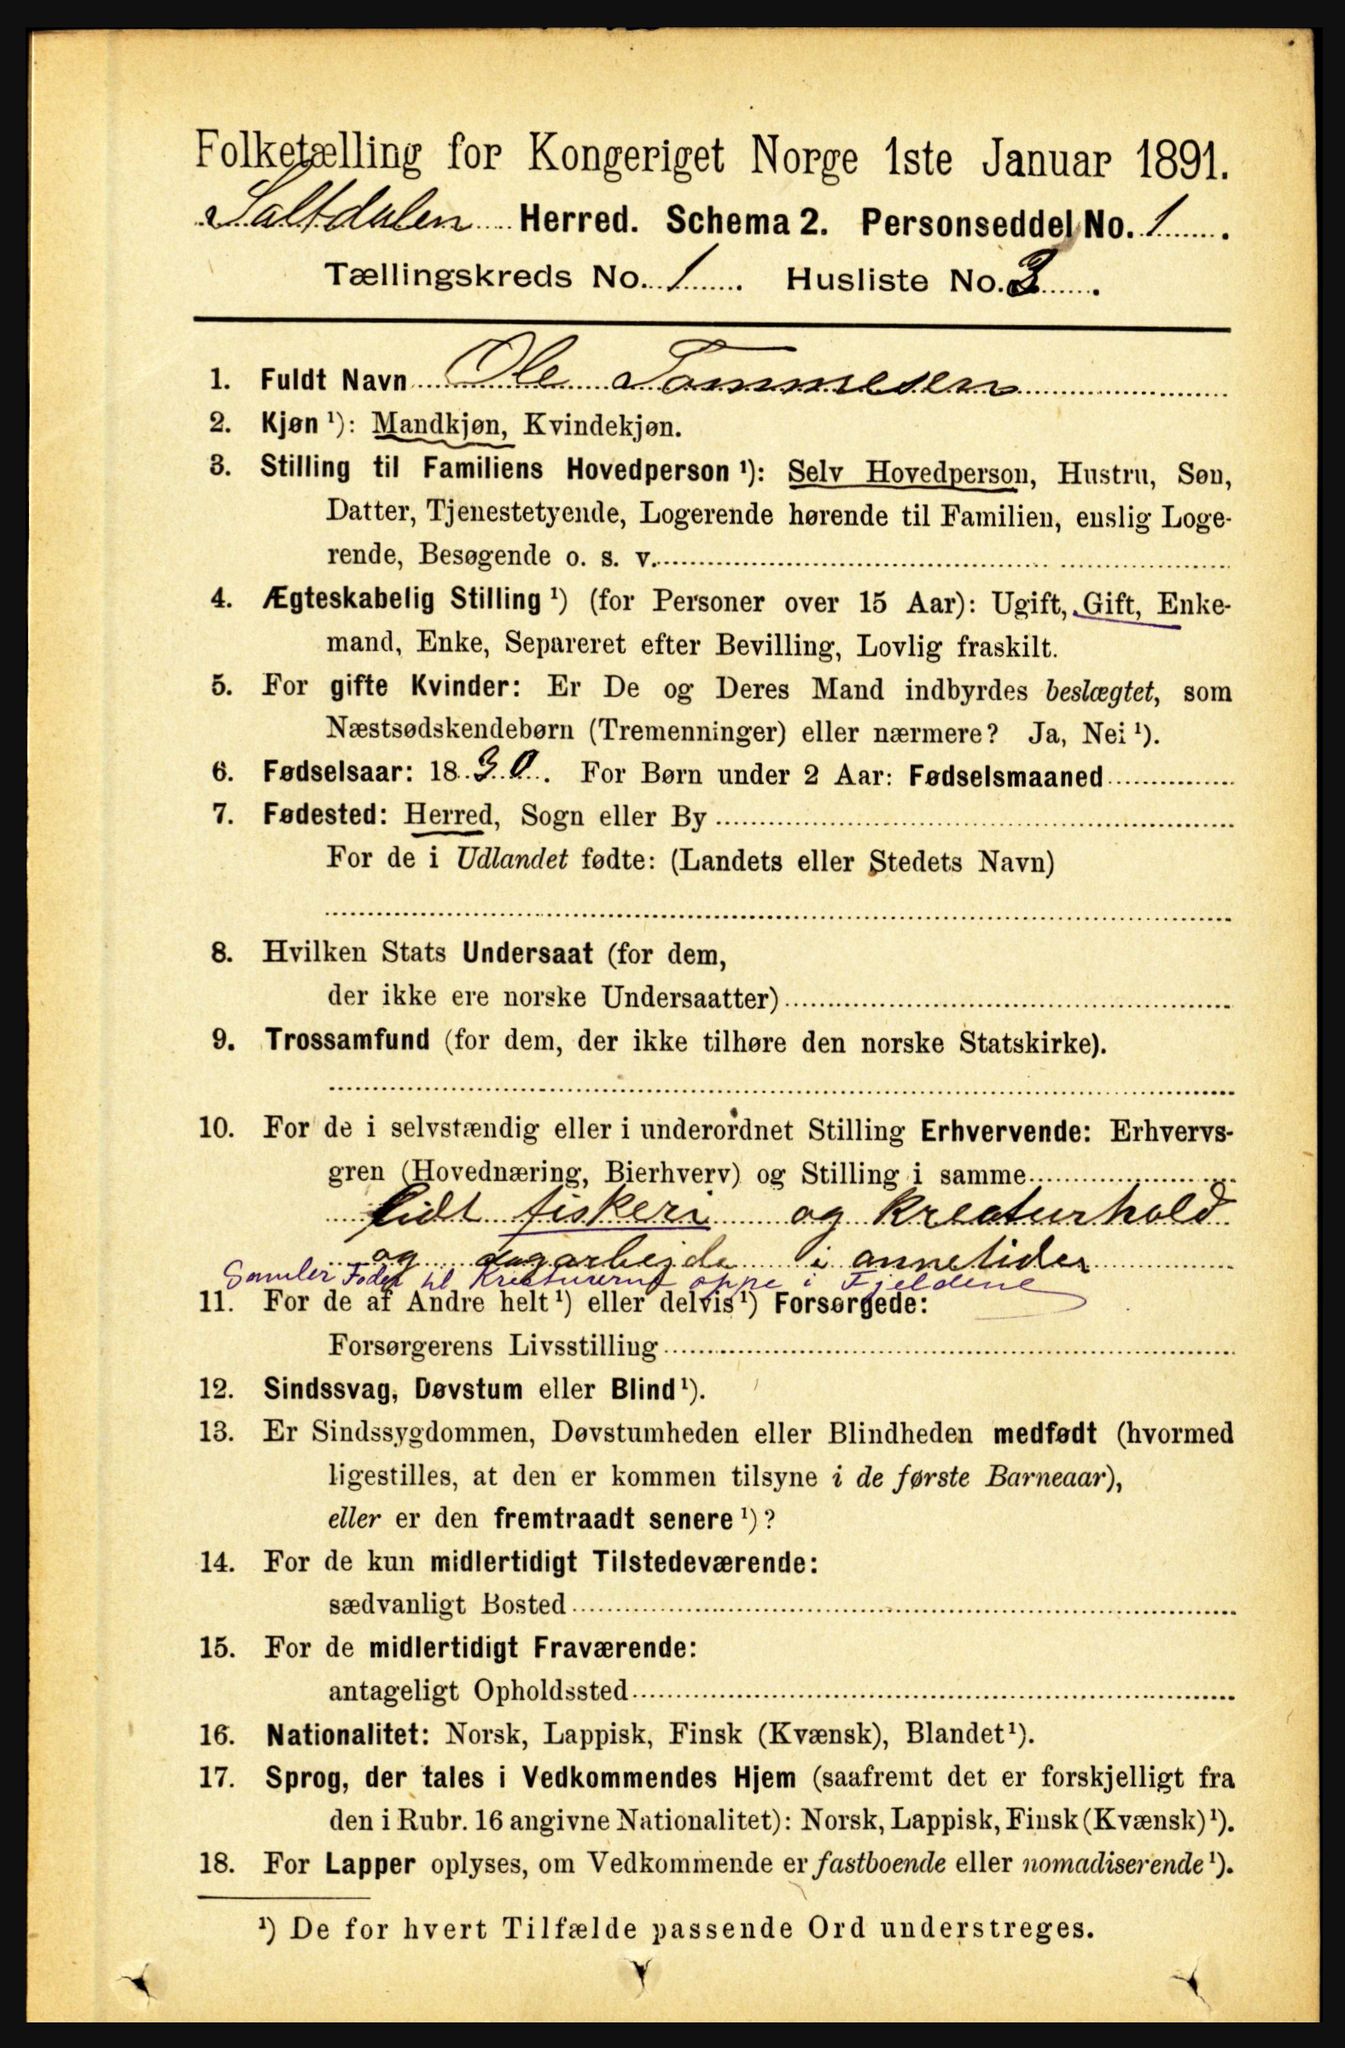 Folketælling for Kongeriget Norge 1ste Januar 1891.
Saltdalen Herred. Schema 2. Personseddel No. 1.
Tællingskreds No. 1. Husliste No. 3.
1. Fuldt Navn Ole Tommesen
2. Kjøn ¹): Mandkjøn, Kvindekjøn.
3. Stilling til Familiens Hovedperson ¹): Selv Hovedperson, Hustru, Søn,
Datter, Tjenestetyende, Logerende hørende til Familien, enslig Loge-
rende, Besøgende o. s. v.
4. Ægteskabelig Stilling ¹) (for Personer over 15 Aar): Ugift, Gift, Enke-
mand, Enke, Separeret efter Bevilling, Lovlig fraskilt.
5. For gifte Kvinder: Er De og Deres Mand indbyrdes beslægtet, som
Næstsødskendebørn (Tremenninger) eller nærmere? Ja, Nei ¹).
6. Fødselsaar: 1830. For Børn under 2 Aar: Fødselsmaaned
7. Fødested: Herred, Sogn eller By
For de i Udlandet fødte: (Landets eller Stedets Navn)
8. Hvilken Stats Undersaat (for dem,
der ikke ere norske Undersaatter)
9. Trossamfund (for dem, der ikke tilhøre den norske Statskirke).
10. For de i selvstændig eller i underordnet Stilling Erhvervende: Erhvervs-
gren (Hovednæring, Bierhverv) og Stilling i samme
lidt fiskeri og Kreaturhold
og dagarbejde i annetider
Samler Foder til Kreaturerne oppe i Fjeldene
11. For de af Andre helt ¹) eller delvis ¹) Forsørgede:
Forsørgerens Livsstilling
12. Sindssvag, Døvstum eller Blind ¹).
13. Er Sindssygdommen, Døvstumheden eller Blindheden medfødt (hvormed
ligestilles, at den er kommen tilsyne i de første Barneaar),
eller er den fremtraadt senere ¹)?
14. For de kun midlertidigt Tilstedeværende:
sædvanligt Bosted
15. For de midlertidigt Fraværende:
antageligt Opholdssted
16. Nationalitet: Norsk, Lappisk, Finsk (Kvænsk), Blandet ¹).
17. Sprog, der tales i Vedkommendes Hjem (saafremt det er forskjelligt fra
den i Rubr. 16 angivne Nationalitet): Norsk, Lappisk, Finsk (Kvænsk) ¹).
18. For Lapper oplyses, om Vedkommende er fastboende eller nomadiserende ¹).
¹) De for hvert Tilfælde passende Ord understreges.